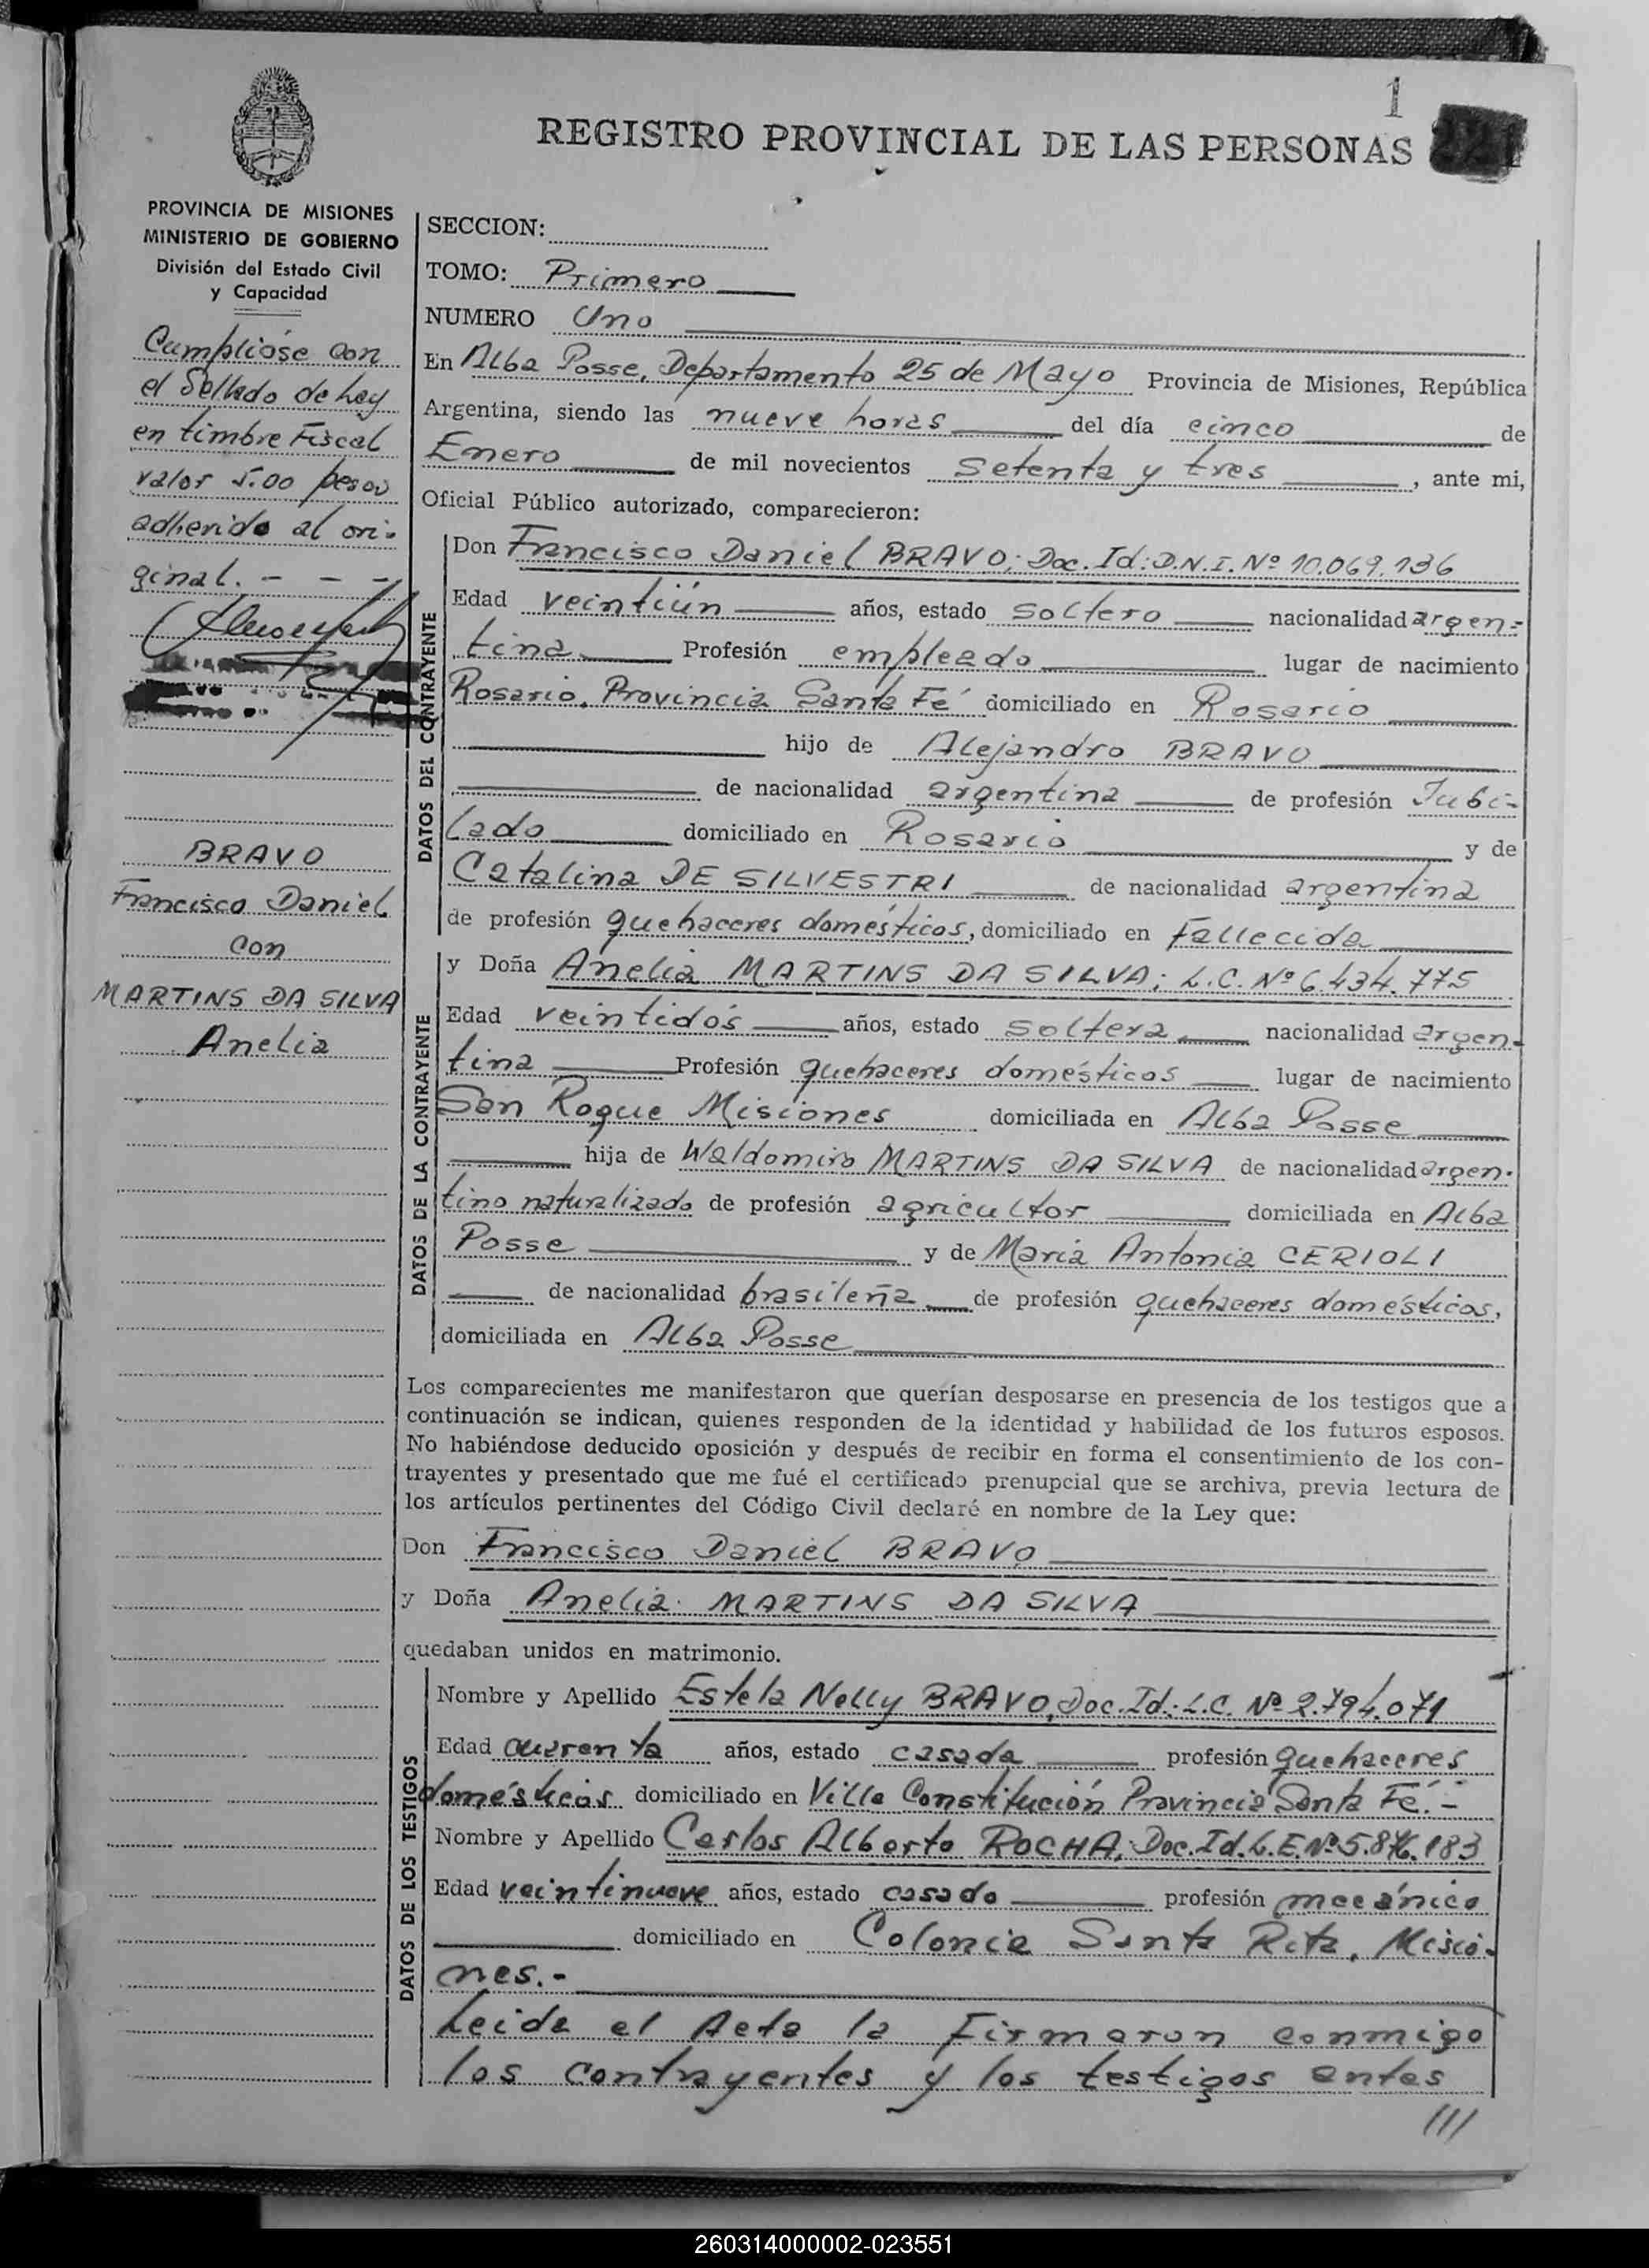 1
REGISTRO PROVINCIAL DE LAS PERSONAS
PROVINCIA DE MISIONES
MINISTERIO DE GOBIERNO
División del Estado Civil
y Capacidad
Cumplióse con
el Sellado de Ley
en timbre Fiscal
valor 5.00 pesos
adherido al ori-
ginal. - - -
BRAVO
Francisco Daniel
con
MARTINS DA SILVA
Anelia
SECCION:
TOMO: Primero
NUMERO Uno
En Alba Posse, Departamento 25 de Mayo Provincia de Misiones, República
Argentina, siendo las nueve horas del día cinco de
Enero de mil novecientos setenta y tres, ante mi,
Oficial Público autorizado, comparecieron:
DATOS DEL CONTRAYENTE
Don Francisco Daniel BRAVO; Doc. Id: D.N.I. Nº 10.069.136
Edad veintiún años, estado soltero nacionalidad argen-
tina Profesión empleado lugar de nacimiento
Rosario, Provincia Santa Fé domiciliado en Rosario
hijo de Alejandro BRAVO
de nacionalidad argentina de profesión Jubi-
lado domiciliado en Rosario y de
Catalina DE SILVESTRI de nacionalidad argentina
de profesión quehaceres domésticos, domiciliado en Fallecida
DATOS DE LA CONTRAYENTE
y Doña Anelia MARTINS DA SILVA; L.C. Nº 6.434.775
Edad veintidós años, estado soltera nacionalidad argen-
tina Profesión quehaceres domésticos lugar de nacimiento
San Roque Misiones domiciliada en Alba Posse
hija de Waldomiro MARTINS DA SILVA de nacionalidad argen-
tino naturalizado de profesión agricultor domiciliada en Alba
Posse y de Maria Antonia CERIOLI
de nacionalidad brasileña de profesión quehaceres domésticos,
domiciliada en Alba Posse
Los comparecientes me manifestaron que querían desposarse en presencia de los testigos que a
continuación se indican, quienes responden de la identidad y habilidad de los futuros esposos.
No habiéndose deducido oposición y después de recibir en forma el consentimiento de los con-
trayentes y presentado que me fué el certificado prenupcial que se archiva, previa lectura de
los artículos pertinentes del Código Civil declaré en nombre de la Ley que:
Don Francisco Daniel BRAVO
y Doña Anelia MARTINS DA SILVA
quedaban unidos en matrimonio.
DATOS DE LOS TESTIGOS
Nombre y Apellido Estela Nelly BRAVO, Doc. Id.: L.C. Nº 2.794.071
Edad cuarenta años, estado casada profesión quehaceres
domésticos domiciliado en Villa Constitución Provincia Santa Fé.-
Nombre y Apellido Carlos Alberto ROCHA, Doc. Id. L.E. Nº
Edad veintinueve años, estado casado profesión mecánico
domiciliado en Colonia Santa Rita, Misio-
nes.-
Leida el Acta la Firmaron conmigo
los contrayentes y los testigos antes
///
260314000002-023551